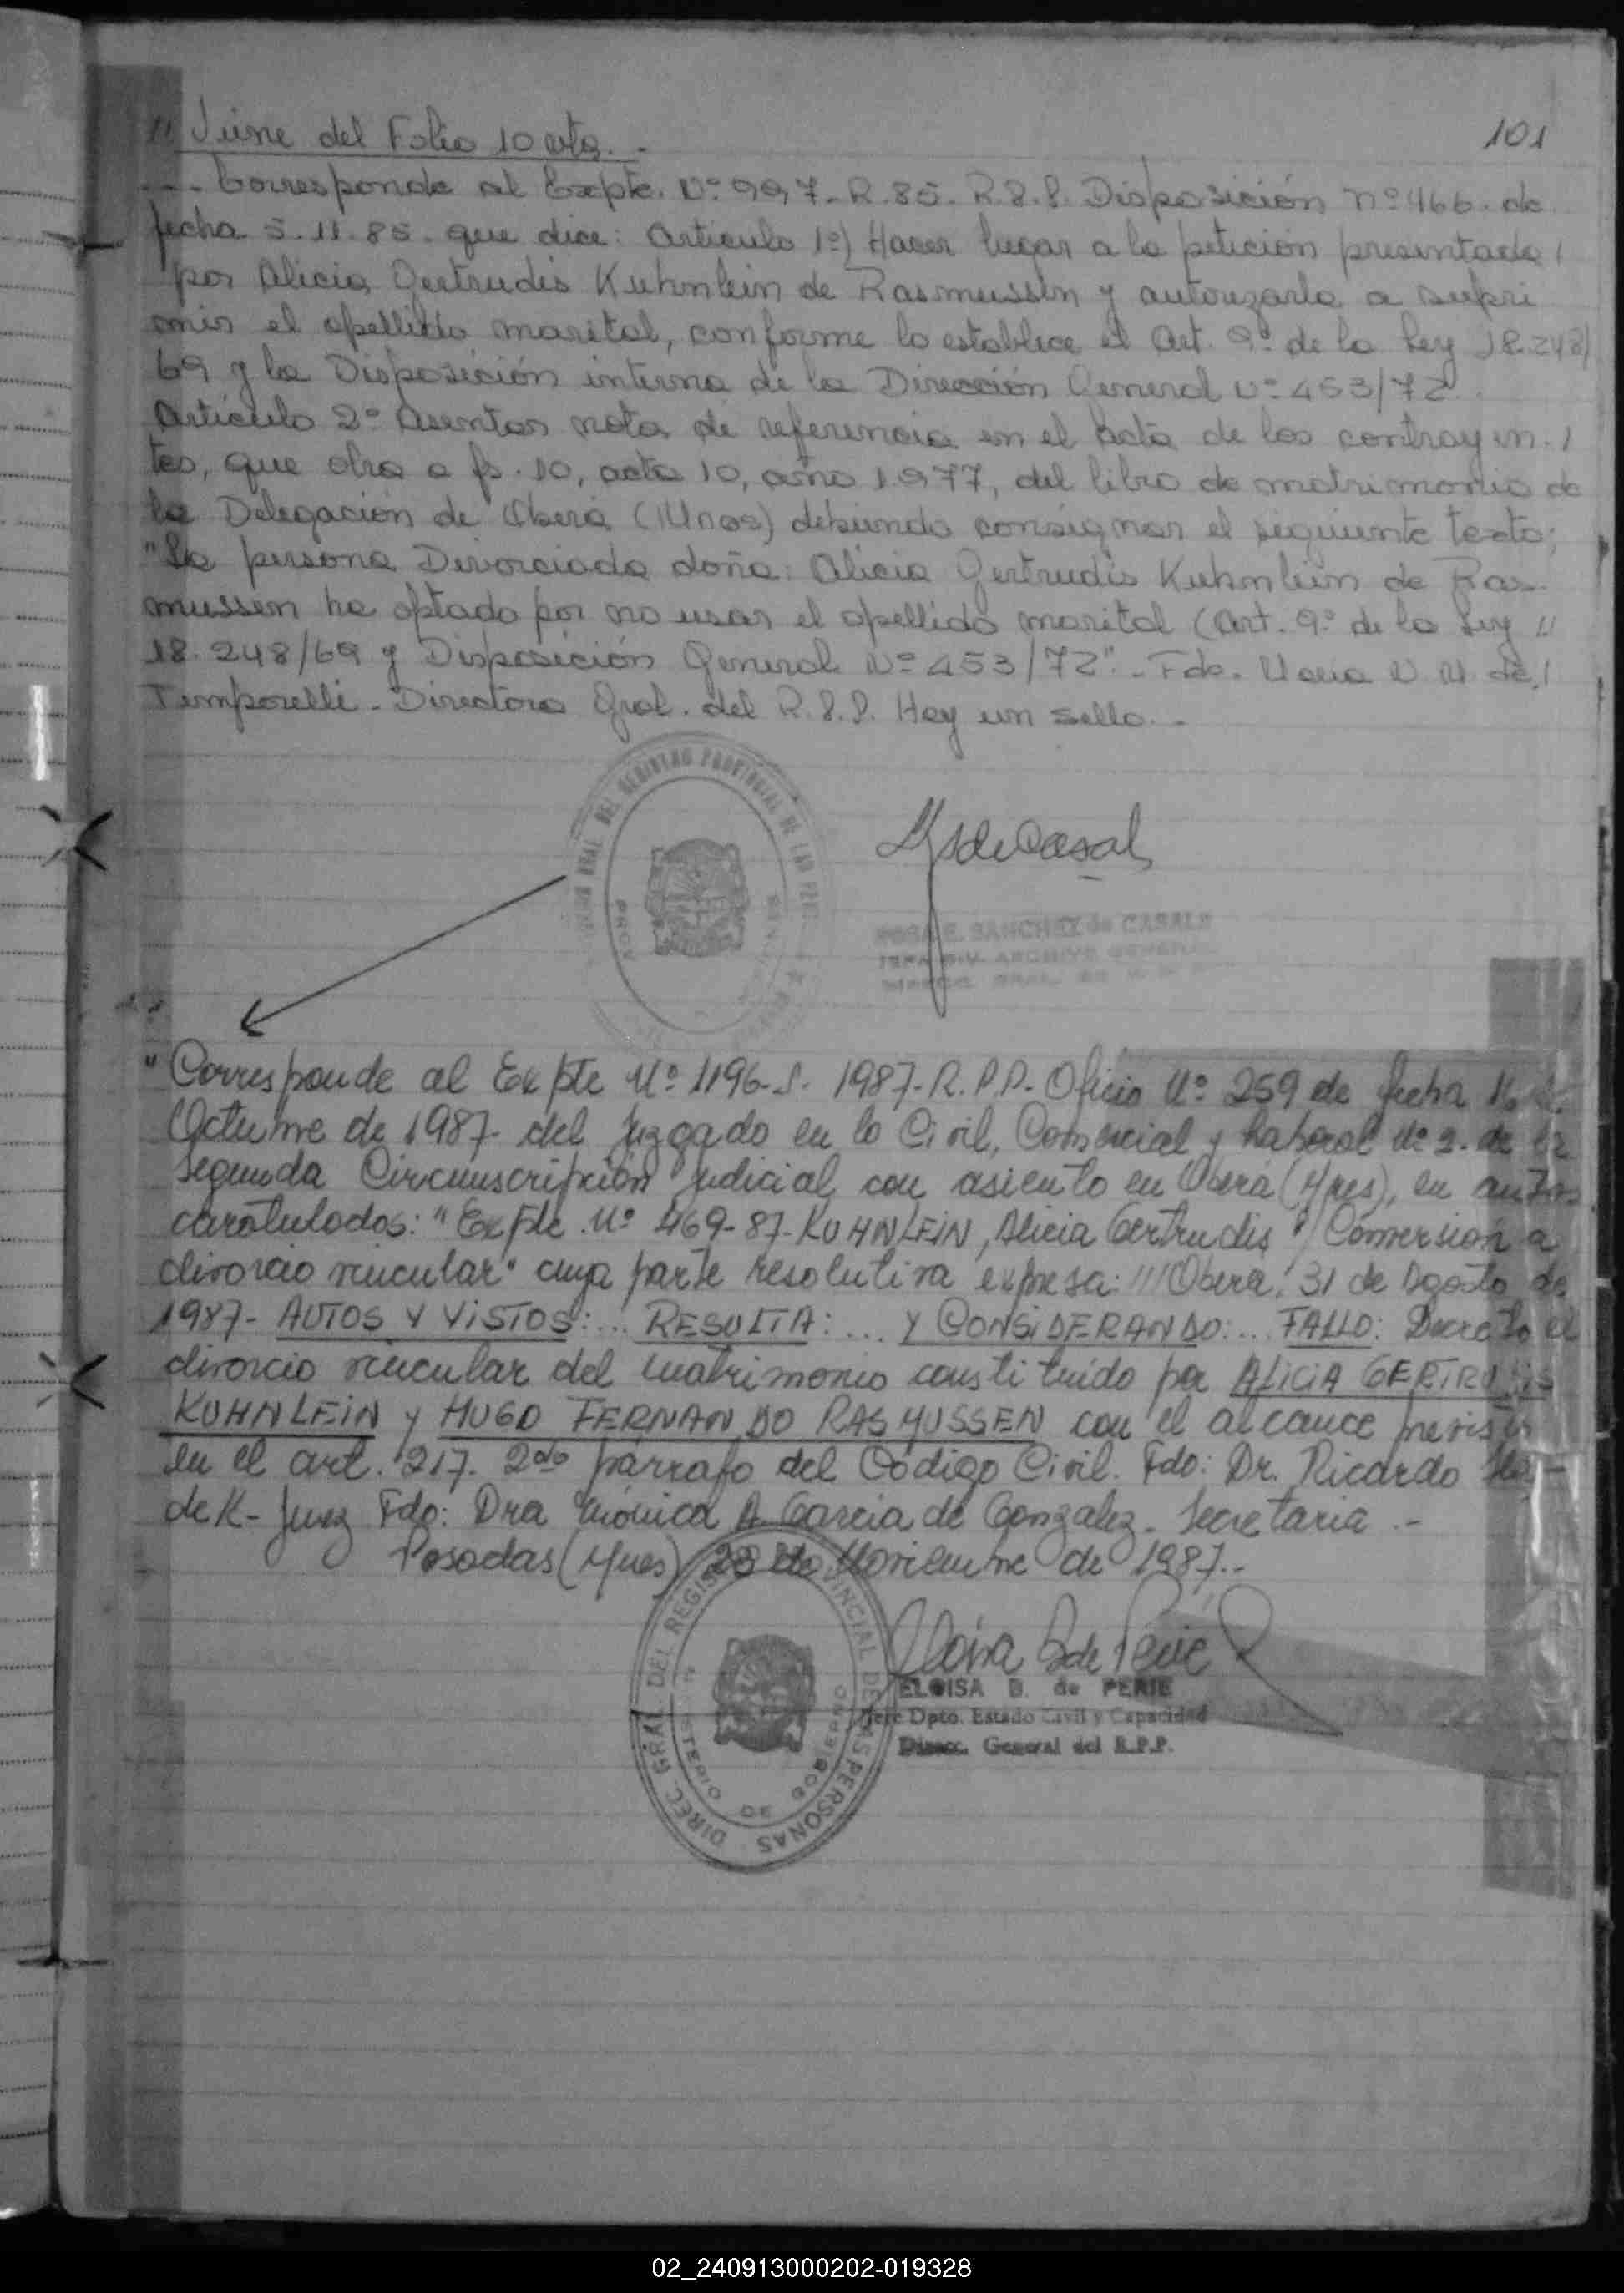 101
" Viene del Folio 10 vta. -
--- Corresponde al Expte. Nº 997-R.85- R.P.P. Disposición nº 466. de
fecha 5.11.85. que dice: Articulo 1º) Hacer lugar a la petición presentada /
por Alicia Gertrudis Kuhnlein de Rasmussen y autorizarla a supri
mir el apellido marital, conforme lo establece el Art. 9º de la Ley 18.248/
69 y la Disposición interna de la Dirección General Nº 453/72.
Articulo 2º Asentar nota de referencia en el acta de los contrayen- /
tes, que obra a fs. 10, acta 10, año 1977, del libro de matrimonio de
la Delegación de Oberá (Mnes) debiendo consignar el siguiente texto;
"La persona Divorciada doña: Alicia Gertrudis Kuhnlein de Ras-
mussen ha optado por no usar el apellido marital (Art. 9º de la Ley //
18.248/69 y Disposición General Nº 453/72". - Fdo. Maria N. M. de /
Temporelli - Directora Gral. del R.P.P. Hay un sello. -
GRAL. DEL REGISTRO PROVINCIAL DE LAS PER
PROV
SdeCasal
ROSA E. SANCHEZ de CASALS
JEFA DIV. ARCHIVO GENERAL
DIRECC. GRAL.
"Corresponde al Expte Nº 1196-S- 1987-R.P.P.- Oficio Nº 259 de fecha 16 de
Octubre de 1987- del Juzgado en lo Civil, Comercial y Laboral Nº 2. de la
Segunda Circunscripción Judicial con asiento en Oberá (Mnes), en autos
caratulados: "Expte. Nº 469-87-KUHNLEIN, Alicia Gertrudis s/ Conversión a
divorcio vincular" cuya parte resolutiva expresa: ///Oberá, 31 de Agosto de
1987- AUTOS Y VISTOS:... RESULTA:... Y CONSIDERANDO:... FALLO: Decreto el
divorcio vincular del matrimonio constituído por ALICIA GERTRUDIS
KUHNLEIN y HUGO FERNANDO RASMUSSEN con el alcance previsto
en el art. 217. 2do párrafo del Código Civil. Fdo: Dr. Ricardo
de K- Juez Fdo: Dra Mónica A. Garcia de Gonzalez- Secretaria.-
Posadas (Mnes) 23 de Noviembre de 1987.-
DIREC. GRAL. DEL REGISTRO PROVINCIAL DE LAS PERSONAS
MINISTERIO DE GOBIERNO
Eloisa B de Perie
ELOISA B. de PERIE
Jefe Dpto. Estado Civil y Capacidad
Direcc. General del R.P.P.
02_240913000202-019328